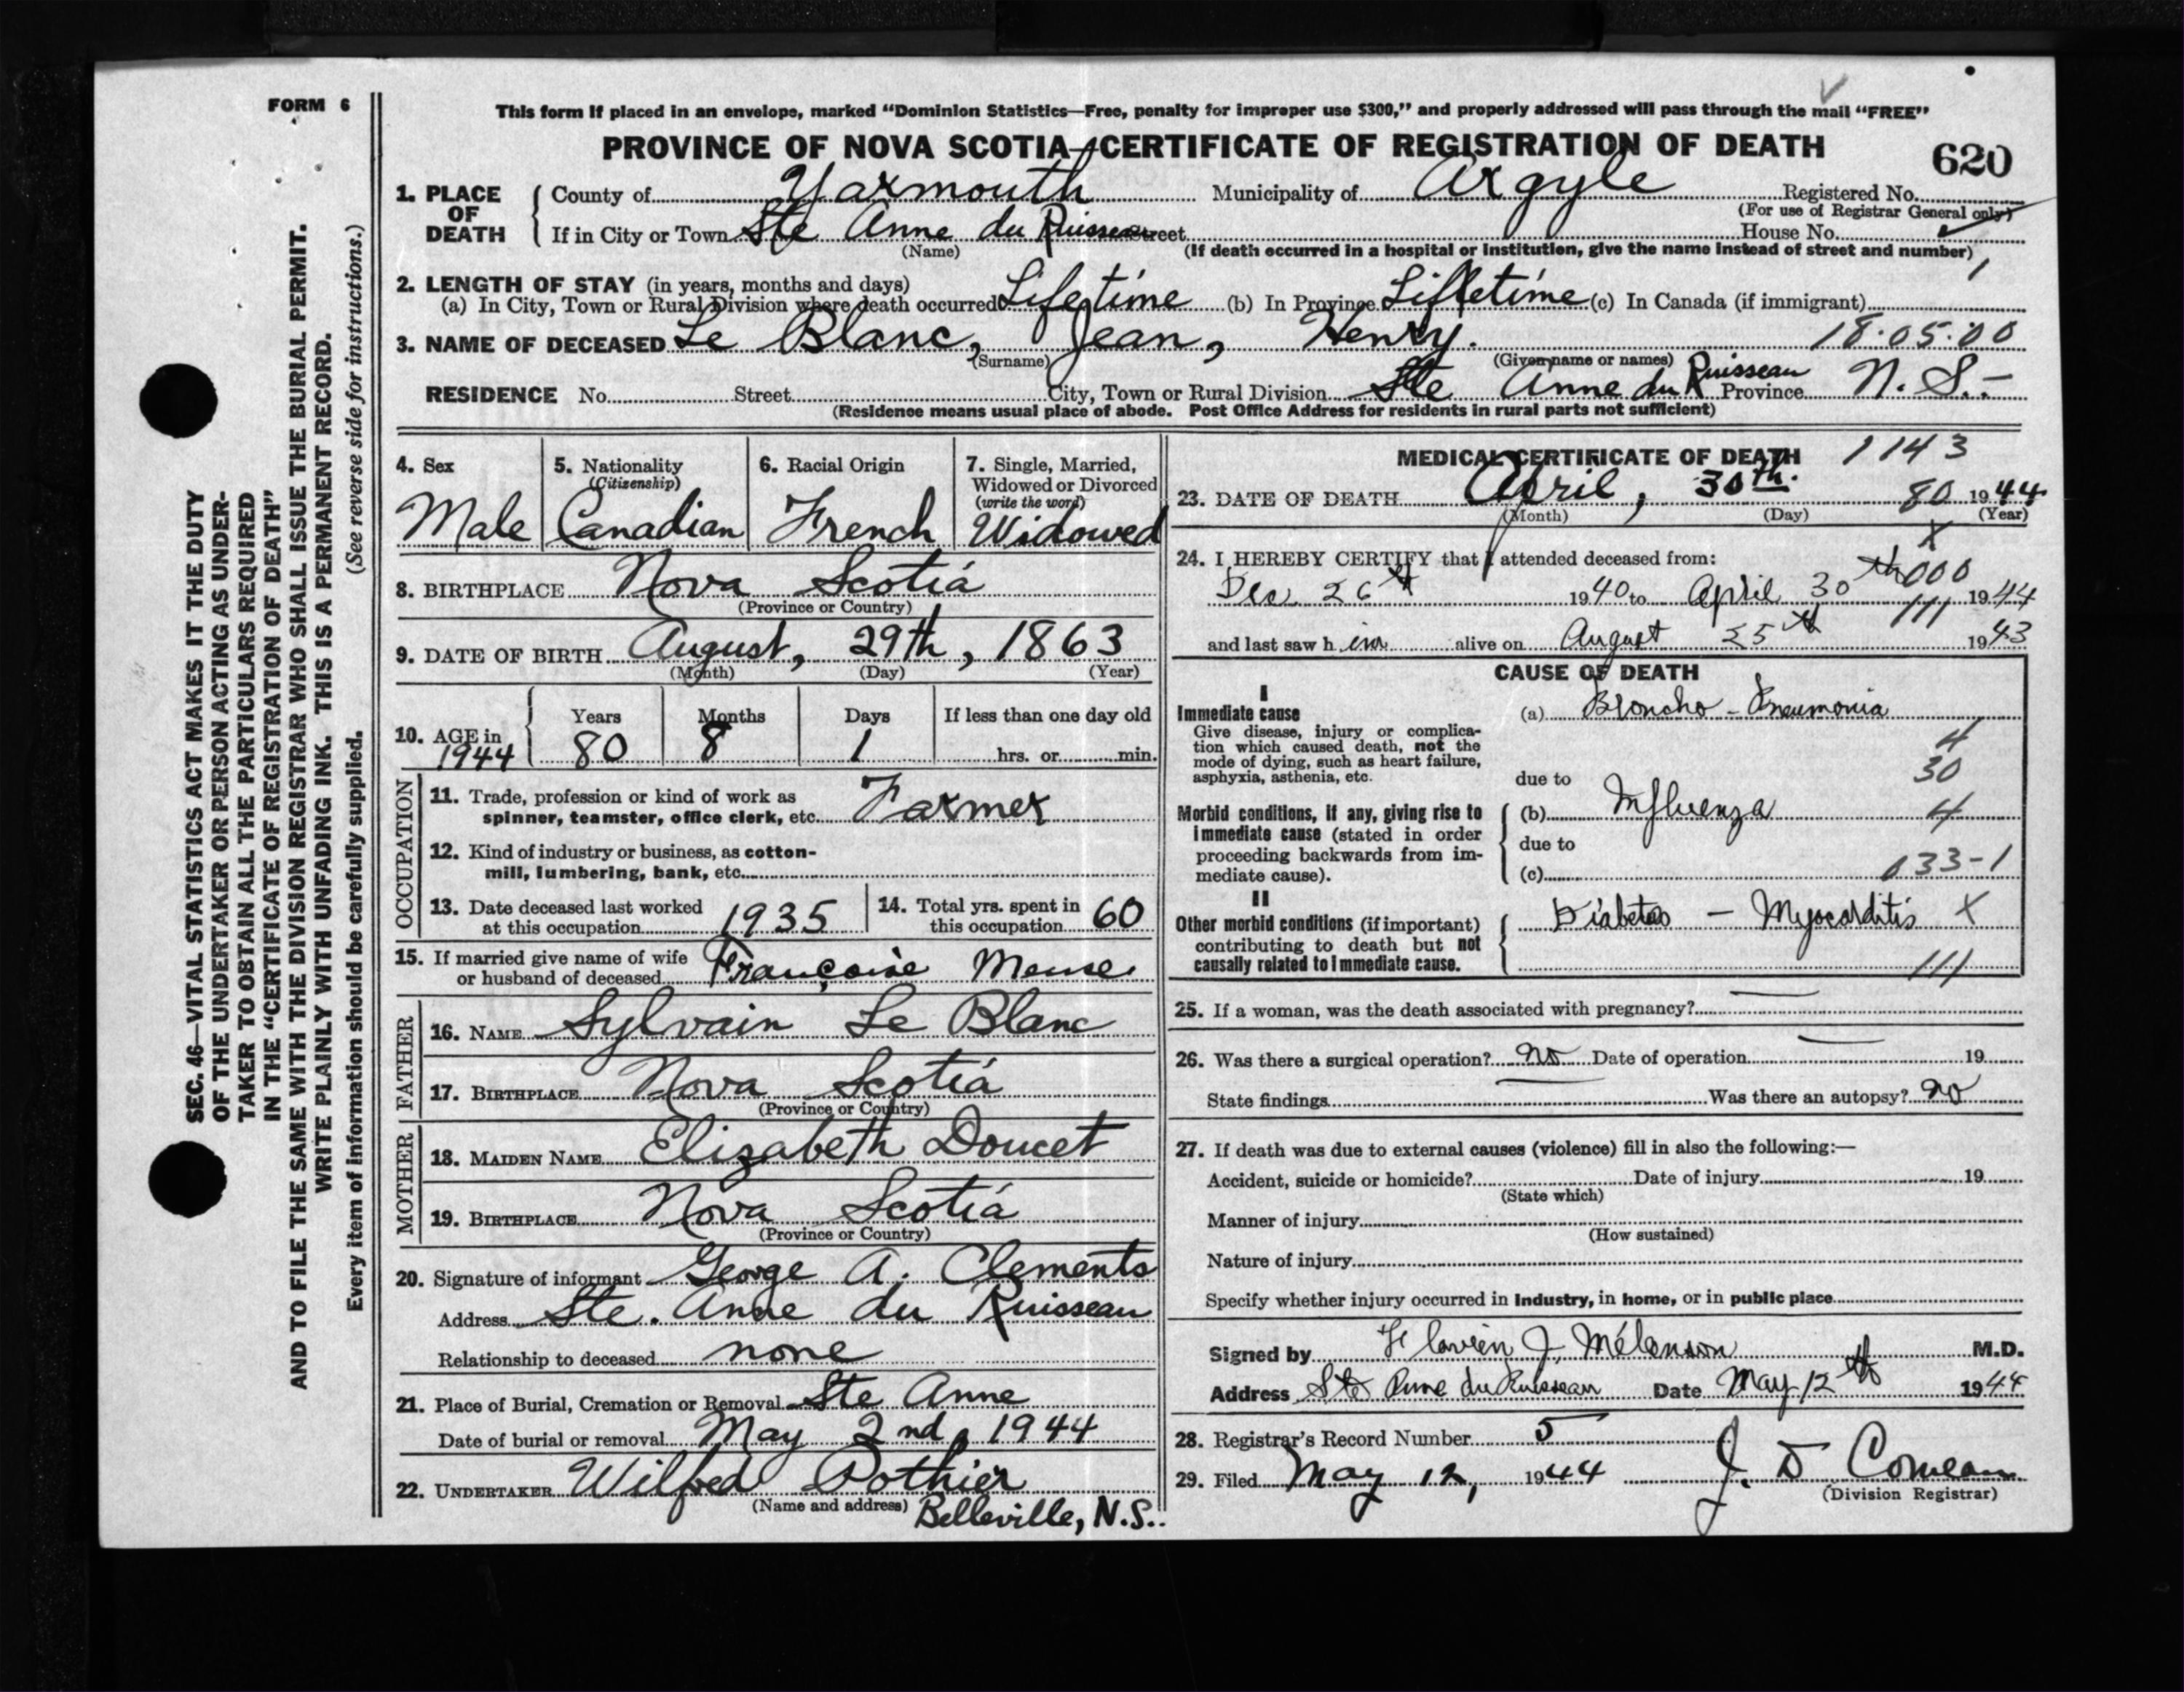 FORM 6
SEC. 46—VITAL STATISTICS ACT MAKES IT THE DUTY
OF THE UNDERTAKER OR PERSON ACTING AS UNDER-
TAKER TO OBTAIN ALL THE PARTICULARS REQUIRED
IN THE "CERTIFICATE OF REGISTRATION OF DEATH"
AND TO FILE THE SAME WITH THE DIVISION REGISTRAR WHO SHALL ISSUE THE BURIAL PERMIT.
WRITE PLAINLY WITH UNFADING INK. THIS IS A PERMANENT RECORD.
Every item of information should be carefully supplied. (See reverse side for instructions.)
This form if placed in an envelope, marked "Dominion Statistics—Free, penalty for improper use $300," and properly addressed will pass through the mail "FREE"
PROVINCE OF NOVA SCOTIA—CERTIFICATE OF REGISTRATION OF DEATH
620
1. PLACE OF DEATH County of Yarmouth Municipality of Argyle Registered No.
(For use of Registrar General only)
If in City or Town Ste Anne du Ruisseau Street House No.
(Name) (If death occurred in a hospital or institution, give the name instead of street and number)
2. LENGTH OF STAY (in years, months and days)
(a) In City, Town or Rural Division where death occurred Lifetime (b) In Province Lifletime (c) In Canada (if immigrant)
3. NAME OF DECEASED Le Blanc, Jean, Henry. 18.05.00
(Surname) (Given name or names)
RESIDENCE No. Street City, Town or Rural Division Ste Anne du Ruisseau Province N. S.-
(Residence means usual place of abode. Post Office Address for residents in rural parts not sufficient)
4. Sex 5. Nationality (Citizenship) 6. Racial Origin 7. Single, Married, Widowed or Divorced (write the word)
Male Canadian French Widowed
8. BIRTHPLACE Nova Scotia
(Province or Country)
9. DATE OF BIRTH August, 29th, 1863
(Month) (Day) (Year)
10. AGE in 1944 Years Months Days If less than one day old
80 8 1 hrs. or min.
OCCUPATION
11. Trade, profession or kind of work as
spinner, teamster, office clerk, etc. Farmer
12. Kind of industry or business, as cotton-
mill, lumbering, bank, etc.
13. Date deceased last worked at this occupation 1935 14. Total yrs. spent in this occupation 60
15. If married give name of wife
or husband of deceased Françoise Meuse
FATHER
16. NAME Sylvain Le Blanc
17. BIRTHPLACE Nova Scotia
(Province or Country)
MOTHER
18. MAIDEN NAME Elizabeth Doucet
19. BIRTHPLACE Nova Scotia
(Province or Country)
20. Signature of informant George A. Clements
Address Ste. Anne du Ruisseau
Relationship to deceased none
21. Place of Burial, Cremation or Removal Ste Anne
Date of burial or removal May 2nd, 1944
22. UNDERTAKER Wilfred Pothier
(Name and address) Belleville, N.S..
MEDICAL CERTIFICATE OF DEATH 1143
23. DATE OF DEATH April, 30th. 80 1944
(Month) (Day) (Year)
X
24. I HEREBY CERTIFY that I attended deceased from:
000
Dec. 26th 1940 to April 30th 1944
111
and last saw h im alive on August 25th 1943
CAUSE OF DEATH
I
Immediate cause (a) Broncho-Pneumonia
Give disease, injury or complica-
tion which caused death, not the 4
mode of dying, such as heart failure, 30
asphyxia, asthenia, etc. due to
Morbid conditions, if any, giving rise to (b) Influenza 4
immediate cause (stated in order due to
proceeding backwards from im-
mediate cause). (c) 033-1
II
Other morbid conditions (if important) Diabetes — Myocarditis X
contributing to death but not
causally related to immediate cause. 111
25. If a woman, was the death associated with pregnancy?
26. Was there a surgical operation? no Date of operation 19
State findings Was there an autopsy? no
27. If death was due to external causes (violence) fill in also the following:—
Accident, suicide or homicide? Date of injury 19
(State which)
Manner of injury
(How sustained)
Nature of injury
Specify whether injury occurred in industry, in home, or in public place
Signed by Flavien J. Mélanson M.D.
Address Ste Anne du Ruisseau Date May 12th 1944
28. Registrar's Record Number 5
29. Filed May 12, 1944 J. D Comeau
(Division Registrar)